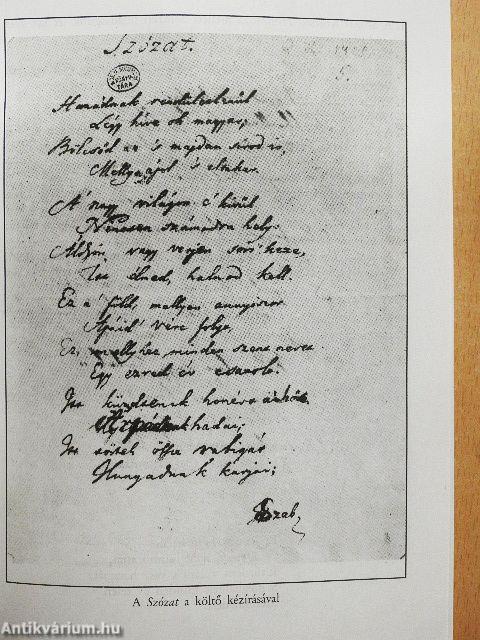 Szózat.
5.
Hazádnak rendületlenűl
Légy híve oh magyar;
Bölcsőd ez 's majdan sírod is,
Melly ápol 's eltakar.
A' nagy világon e' kívűl
Nincsen számodra hely;
Áldjon vagy verjen sors' keze,
Itt élned, halnod kell.
Ez a' föld, mellyen annyiszor
Apáid' vére folyt,
Ez, mellyhez minden szent nevet
Egy ezred év csatolt.
Itt küzdtenek honért a hős
Árpádnak hadai;
Itt törtek össze rabigát
Hunyadnak karjai;
Szab
A Szózat a költő kézírásával
Antikvárium.hu